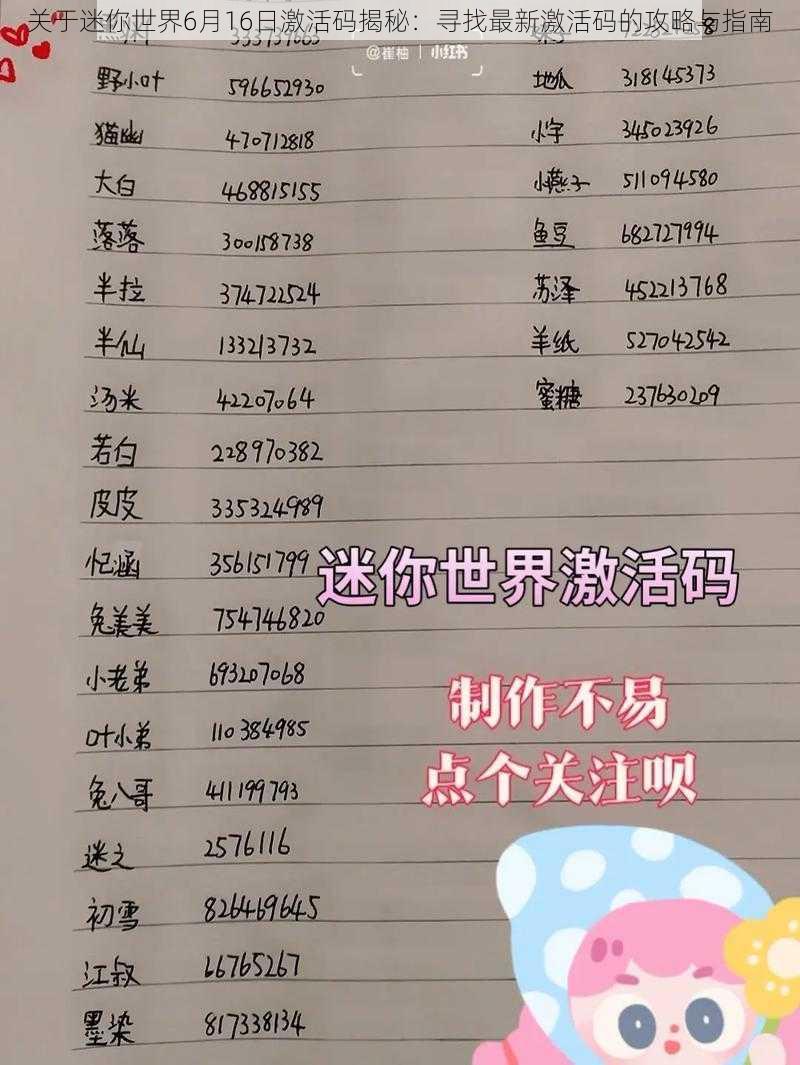 关于迷你世界6月16日激活码揭秘：寻找最新激活码的攻略与指南
@崔柚 | 小红书
野小叶 596652930
地瓜 318145373
猫幽 470712818
小字 345023926
大白 468815155
小燕子 511094580
落落 300158738
鱼豆 682727994
半拉 374722524
苏泽 452213768
半仙 133213732
羊纸 527042542
汤米 42207064
蜜糖 237630209
若白 228970382
皮皮 335324989
忆涵 356151799
迷你世界激活码
兔美美 754746820
小老弟 693207068
制作不易
叶小弟 110384985
点个关注呗
兔八哥 411199793
迷之 2576116
初雪 826469645
江叔 66765267
墨染 817338134